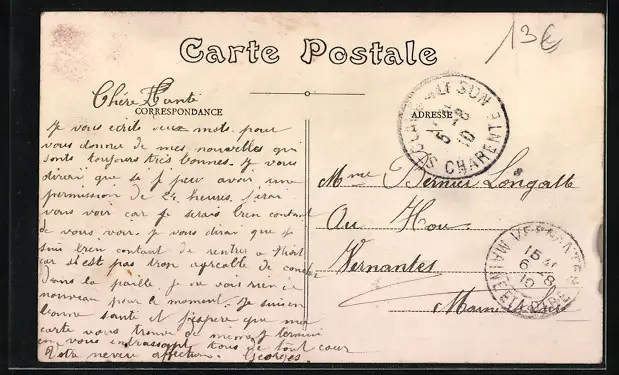 Carte Postale
13€
Chère Tante
CORRESPONDANCE
ADRESSE
Je vous ecrits deux mots pour
vous donner de mes nouvelles qui
sonts toujours très bonnes. Je vous
dirai que si je peux avoir une
permission de 24 heures. J'irai
vous voir car je serais bien content
de vous voir. Je vous dirai que je
suis bien content de rentrer a
car s'est pas trop agréable de
dans la paille. Je ne vois rien de
nouveau pour le moment. Je suis en
bonne santé et j'espère que ma
carte vous trouve de meme Je termine
en vous embrassant tous de tout cœur
Votre neveu affection. Georges
Mme Bernier Longatte
Au Hou.
Vernantes
Maine et Loire
CHARENTE
15
6
MAINE ET LOIRE